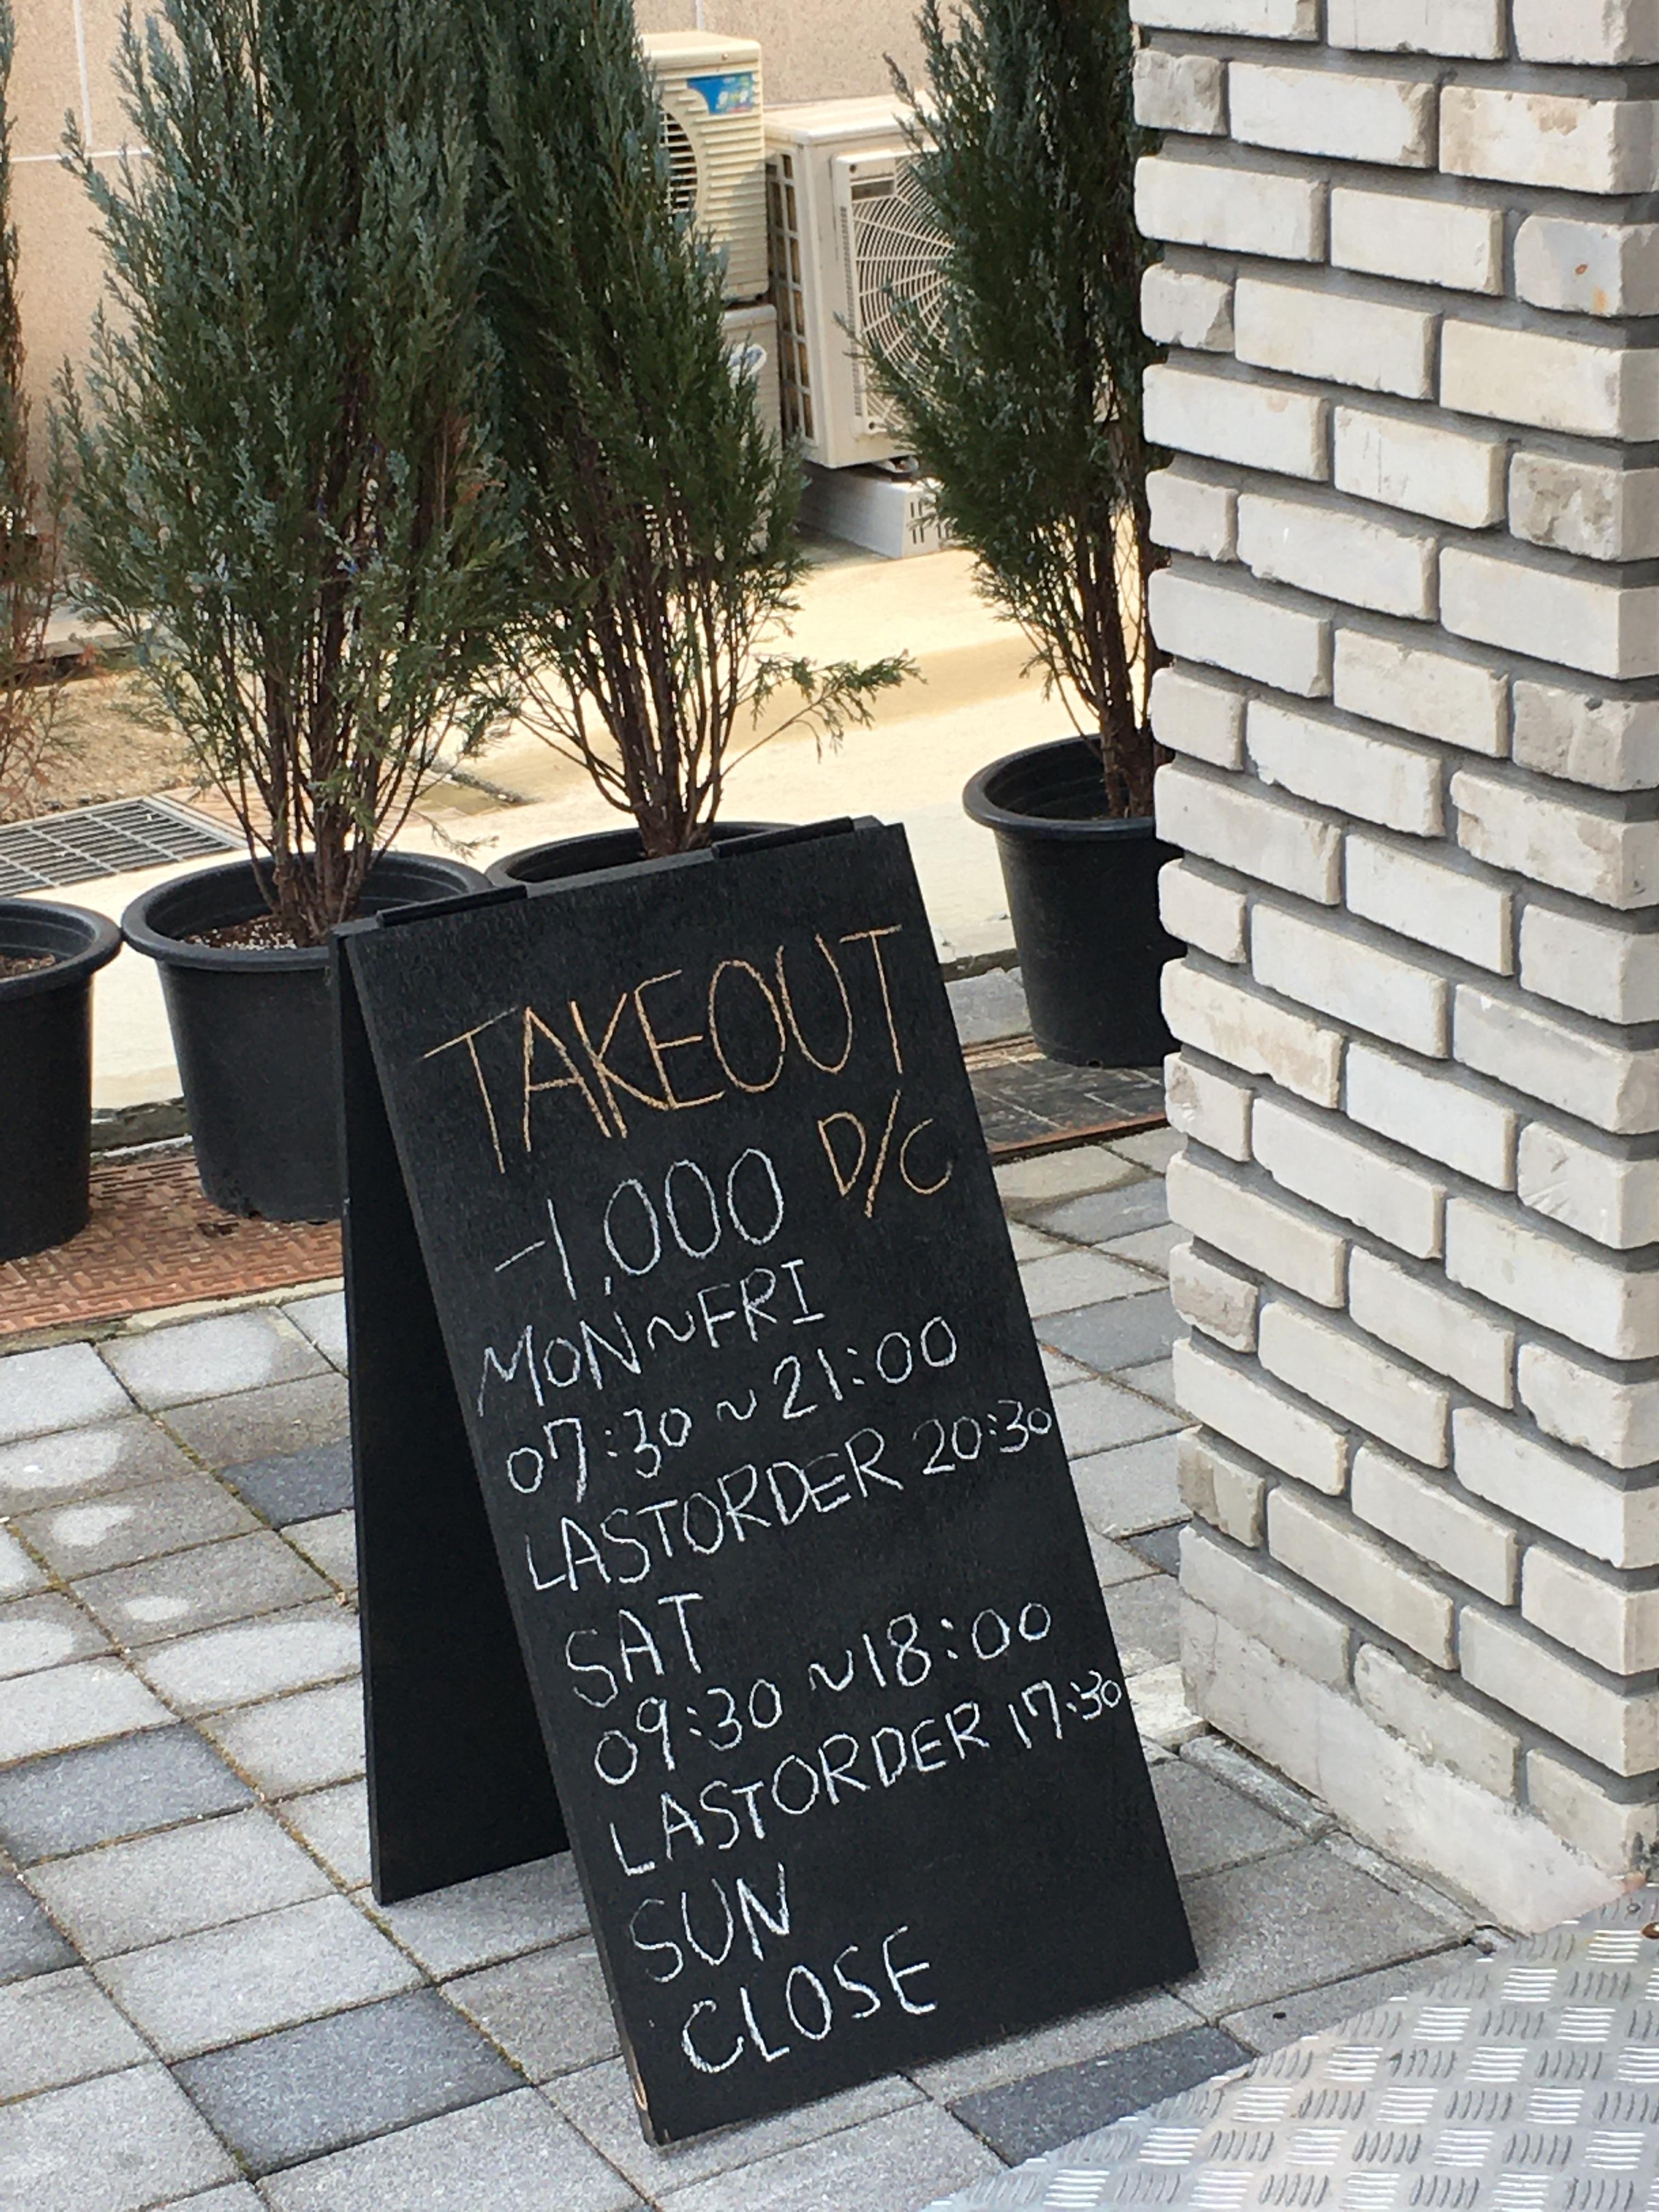 TAKEOUT
D/C
-1,000
MON~FRI
07:30~21:00
LASTORDER 20:30
SAT
09:30~18:00
LASTORDER 17:30
SUN
CLOSE